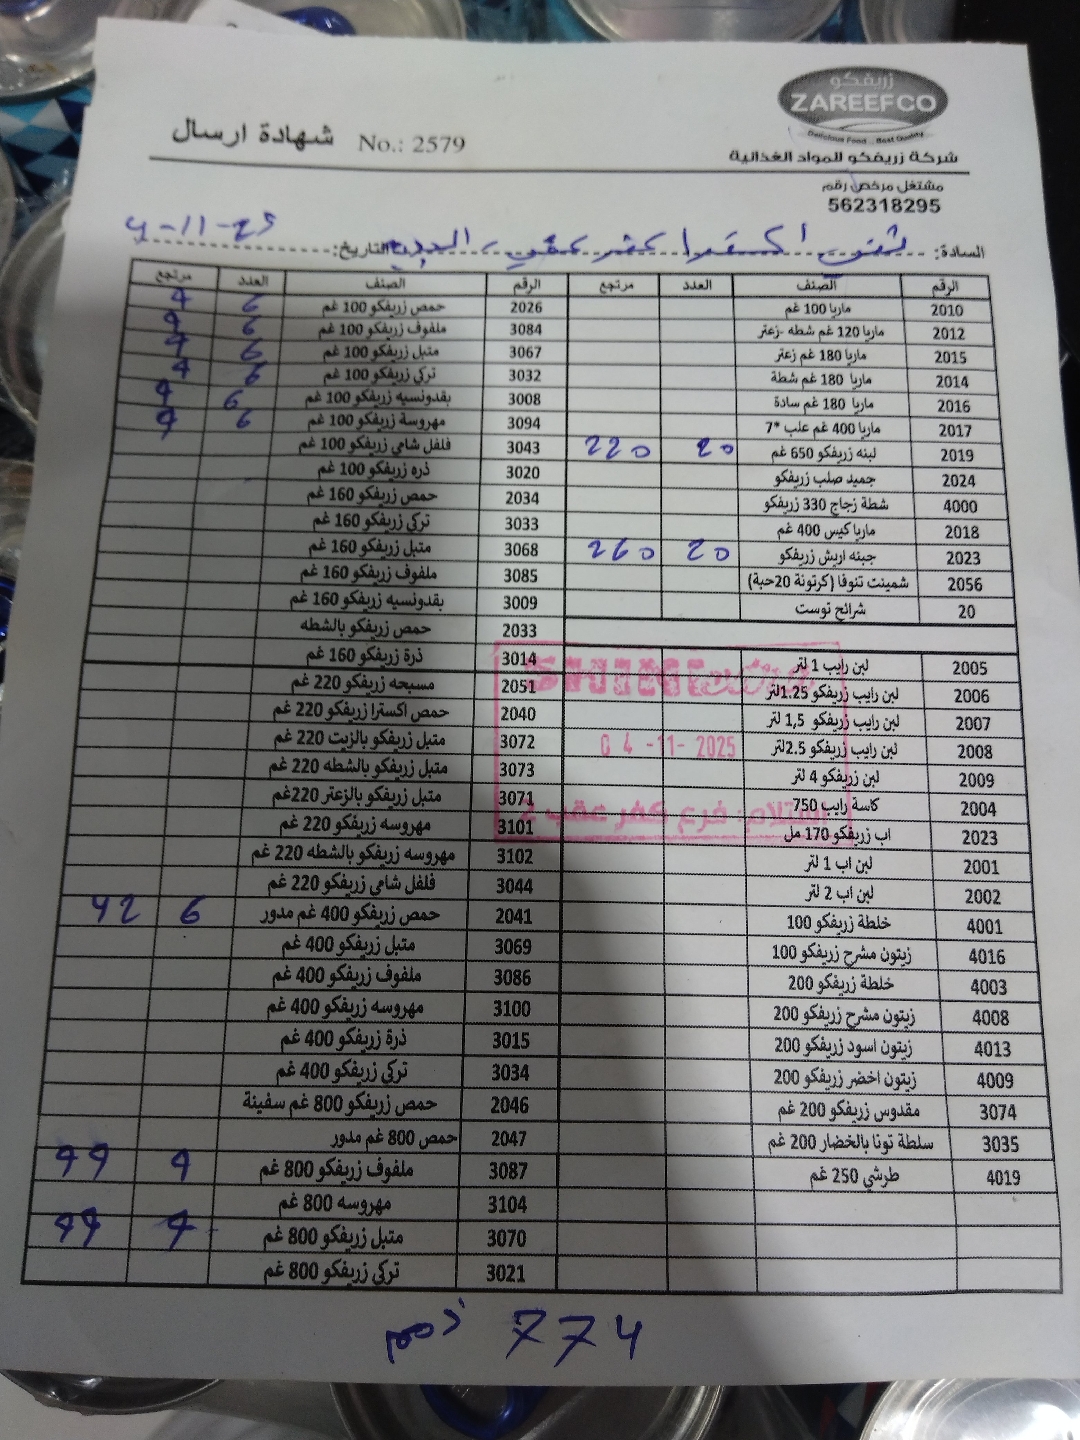 زريفكو
ZAREEFCO
Delicious Food... Best Quality
شهادة ارسال No.: 2579
شركة زريفكو للمواد الغذائية
مشتغل مرخص رقم
562318295
السادة: شني اكسترا كفر عقب التاريخ: 4-11-25
الرقم الصنف العدد مرتجع الرقم الصنف العدد مرتجع
2010 ماريا 100 غم 2026 حمص زريفكو 100 غم 6 9
2012 ماريا 120 غم شطه -زعتر 3084 ملفوف زريفكو 100 غم 6 9
2015 ماريا 180 غم زعتر 3067 متبل زريفكو 100 غم 6 9
2014 ماريا 180 غم شطة 3032 تركي زريفكو 100 غم 6 9
2016 ماريا 180 غم سادة 3008 بقدونسيه زريفكو 100 غم 6 9
2017 ماريا 400 غم علب *7 3094 مهروسة زريفكو 100 غم 6 9
2019 لبنه زريفكو 650 غم 20 220 3043 فلفل شامي زريفكو 100 غم
2024 جميد صلب زريفكو 3020 ذره زريفكو 100 غم
4000 شطة زجاج 330 زريفكو 2034 حمص زريفكو 160 غم
2018 ماريا كيس 400 غم 3033 تركي زريفكو 160 غم
2023 جبنه اريش زريفكو 20 260 3068 متبل زريفكو 160 غم
2056 شمينت تنوفا (كرتونة 20حبة) 3085 ملفوف زريفكو 160 غم
20 شرائح توست 3009 بقدونسيه زريفكو 160 غم
2033 حمص زريفكو بالشطه
2005 لبن رايب 1 لتر 3014 ذرة زريفكو 160 غم
2006 لبن رايب زريفكو 1.25لتر 2051 مسبحه زريفكو 220 غم
2007 لبن رايب زريفكو 1,5 لتر 2040 حمص اكسترا زريفكو 220 غم
2008 لبن رايب زريفكو 2.5لتر 3072 متبل زريفكو بالزيت 220 غم
2009 لبن زريفكو 4 لتر 3073 متبل زريفكو بالشطه 220 غم
2004 كاسة رايب 750 3071 متبل زريفكو بالزعتر 220غم
2023 اب زريفكو 170 مل 3101 مهروسه زريفكو 220 غم
2001 لبن اب 1 لتر 3102 مهروسه زريفكو بالشطه 220 غم
2002 لبن اب 2 لتر 3044 فلفل شامي زريفكو 220 غم
4001 خلطة زريفكو 100 2041 حمص زريفكو 400 غم مدور 6 42
4016 زيتون مشرح زريفكو 100 3069 متبل زريفكو 400 غم
4003 خلطة زريفكو 200 3086 ملفوف زريفكو 400 غم
4008 زيتون مشرح زريفكو 200 3100 مهروسه زريفكو 400 غم
4013 زيتون اسود زريفكو 200 3015 ذرة زريفكو 400 غم
4009 زيتون اخضر زريفكو 200 3034 تركي زريفكو 400 غم
3074 مقدوس زريفكو 200 غم 2046 حمص زريفكو 800 غم سفينة
3035 سلطة تونا بالخضار 200 غم 2047 حمص 800 غم مدور
4019 طرشي 250 غم 3087 ملفوف زريفكو 800 غم 9 99
3104 مهروسه 800 غم
3070 متبل زريفكو 800 غم 9 99
3021 تركي زريفكو 800 غم
04 -11- 2025
استلام: فرع كفر عقب 2
774